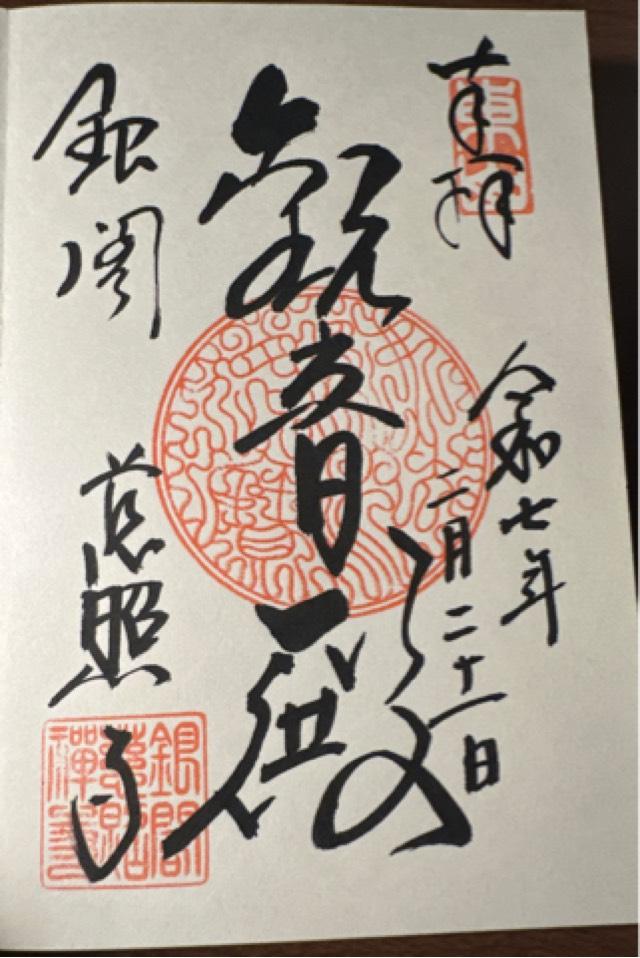 奉拝
令和七年
二月二十一日
観音殿
銀閣
慈照寺
銀閣
慈照
禅寺